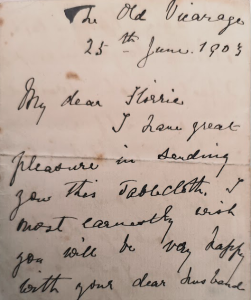 The Old Vicarage
25th June 1903
My dear Florrie
I have great
pleasure in sending
you this Tablecloth, I
most earnestly wish
you will be very happy
with your dear husband